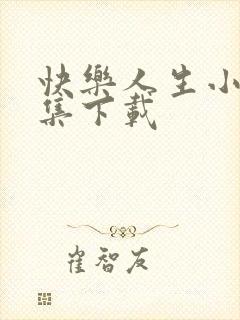 快樂人生小
集下載
崔智友